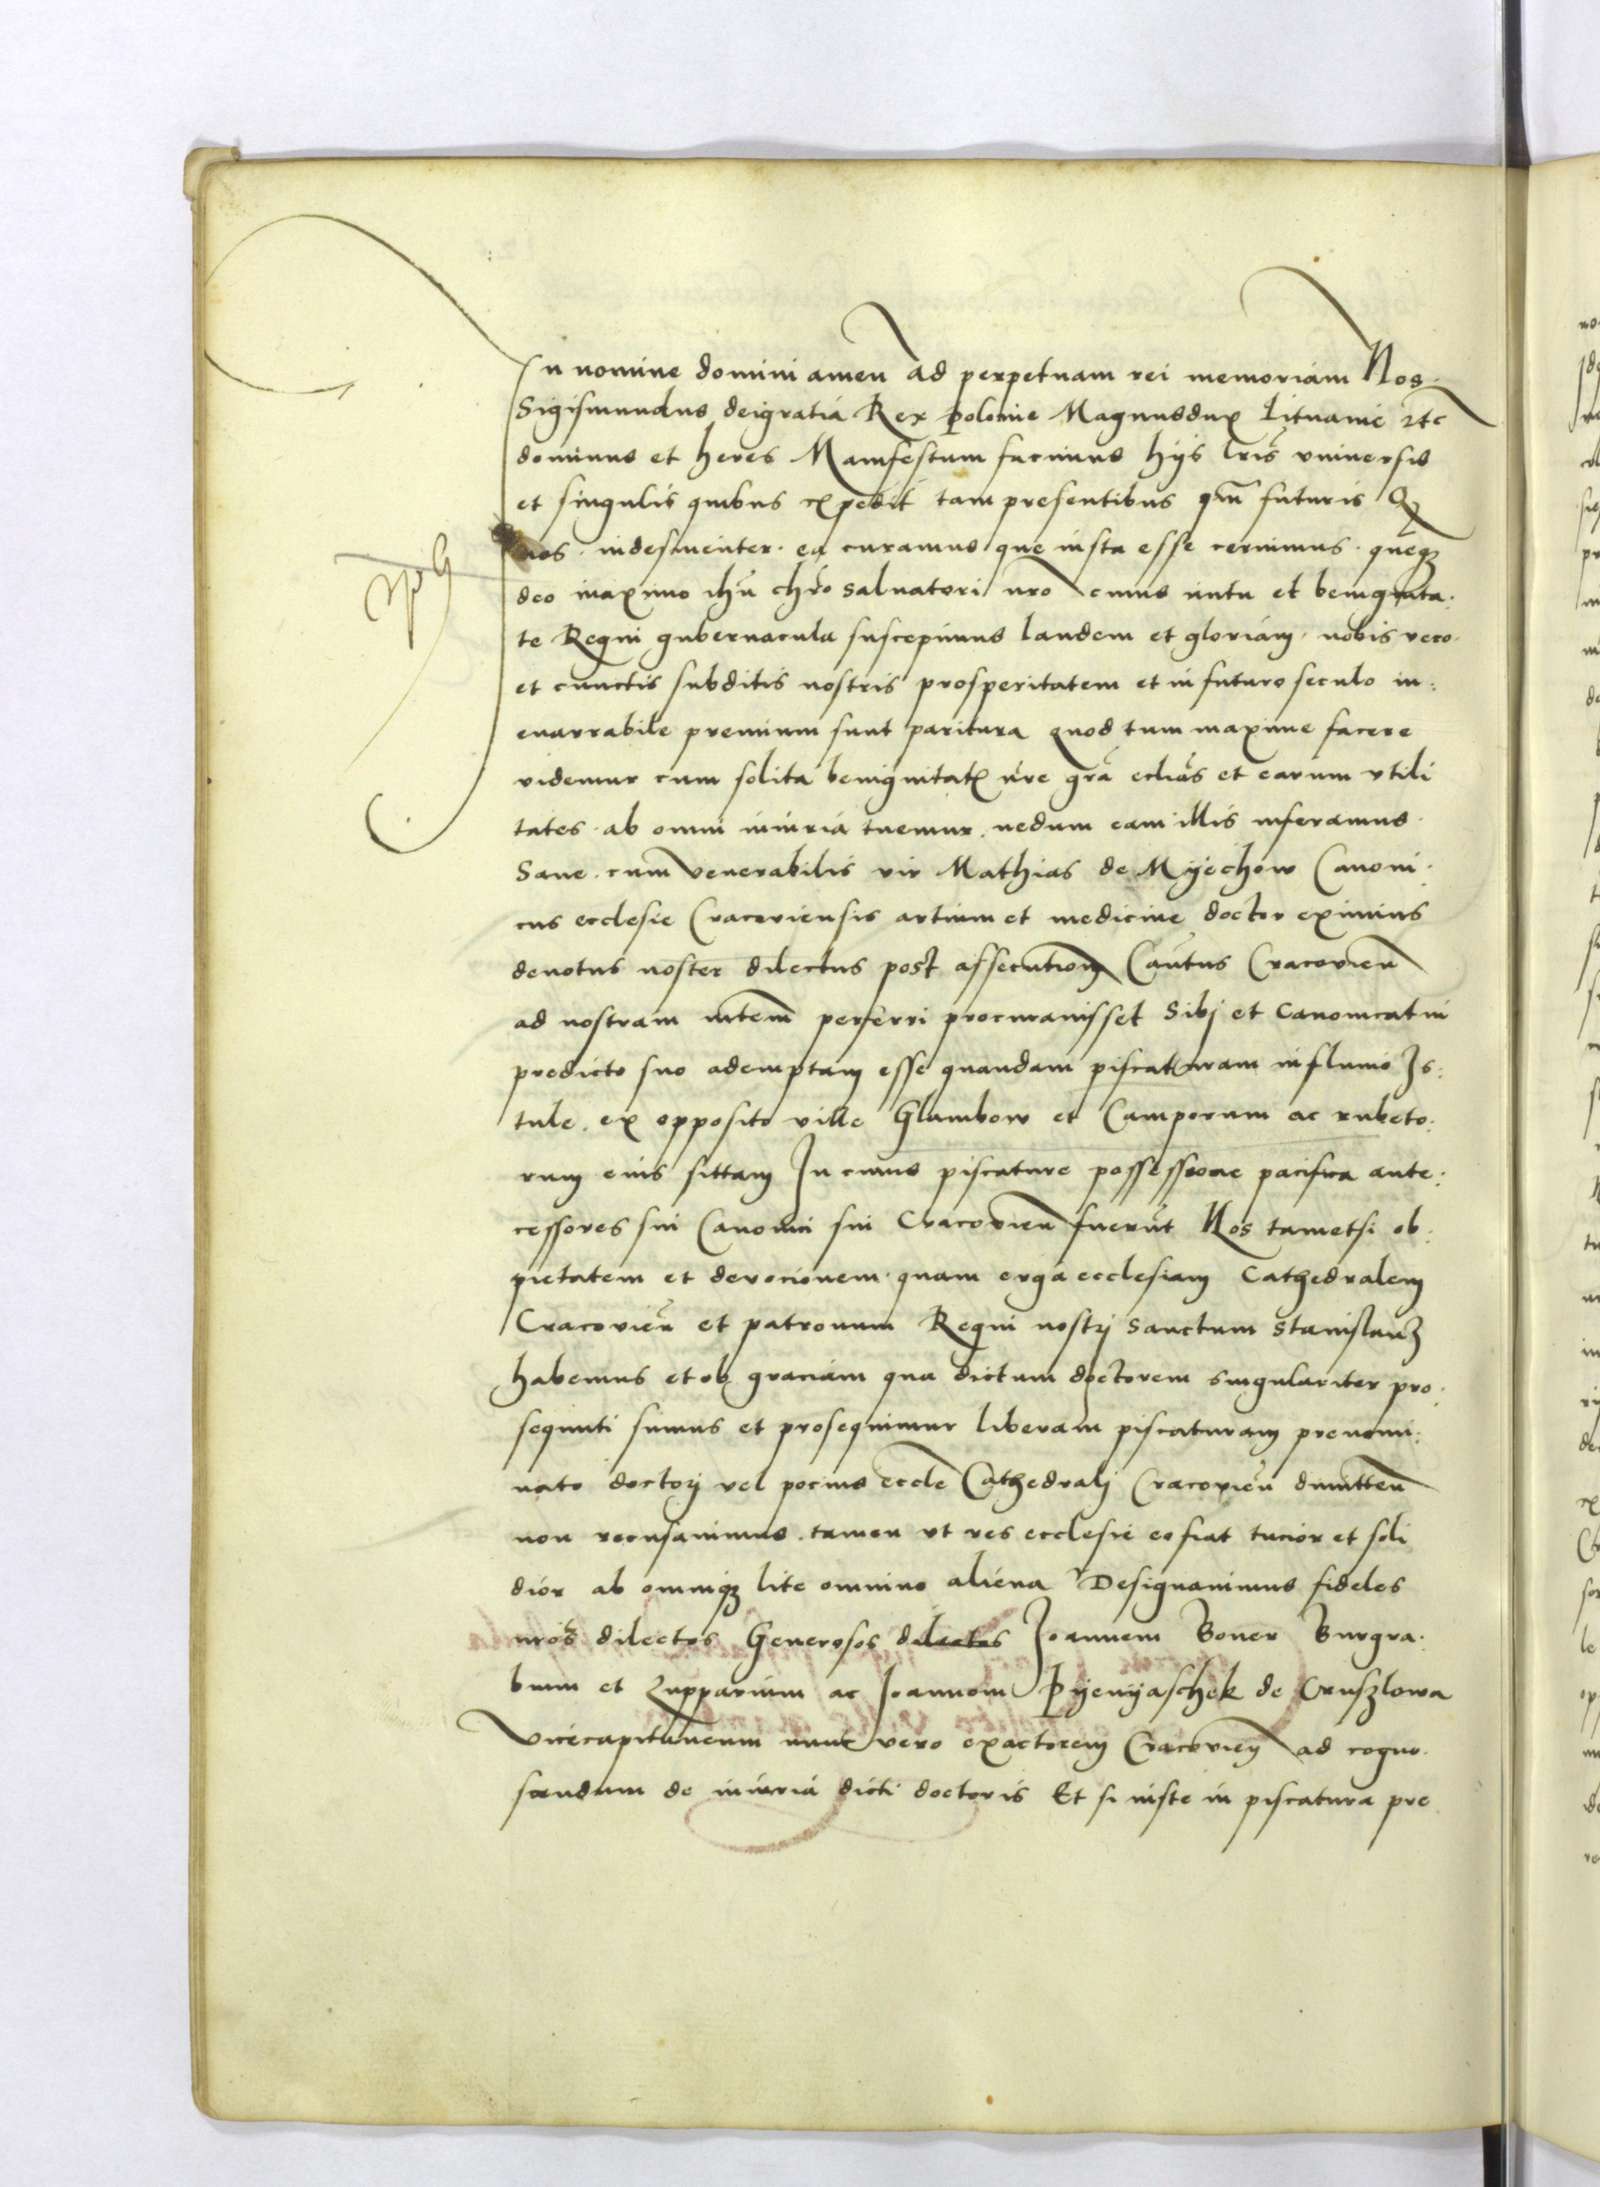 In nomine domini amen Ad perpetuam rei memoriam Nos
Sigismundus deigratia Rex polonie Magnusdux Lituanie etc
dominus et heres Manifestum facimus hijs lris vniuersis
et singulis quibus expedit tam presentibus qm futuris Q
nos . indesinenter . ea curamus que iusta esse cernimus . queq;
deo maximo ihu chro saluatori nro cuius nutu et benignita
te Regni gubernacula suscepimus laudem et gloriam . nobis vero
et cunctis subditis nostris prosperitatem et in futuro seculo in:
enarrabile premium sunt paritura quod tum maxime facere
videmur cum solita benignitate nre gra eclias et earum vtili
tates . ab omni iniuria tuemur . nedum eam illis inferamus .
Sane . cum venerabilis vir Mathias de Myechow Canoni
cus ecclesie Cracouiensis artium et medicine doctor eximius
deuotus noster dilectus post assecutionem Cautus Cracouien
ad nostram mtem perferri procurauisset Sibj et Canonicatui
predicto suo ademptam esse quandam piscaturam in fluuio Is:
tule . ex opposito ville Glambow et Camporum ac rubeto:
rum eius sittam In cuius piscature possessione pacifica ante:
cessores sui Canonici sui Cracouien fuerut Nos tametsi ob:
pietatem et deuocionem . quam erga ecclesiam Cathedralem
Cracouien et patronum Regni nostrj Sanctum Stanislau
habemus et ob graciam qua dictum doctorem singulariter pro
sequuti sumus et prosequimur liberam piscaturam prenomi:
nato doctorj vel pocius eccle Cathedralj Cracouien dimitten
non recusauimus . tamen vt res ecclesie eo fiat tucior et soli
dior ab omniq; lite omnino aliena Designauimus fideles
nros dilectos Generosos dilectos Joannem Boner Burgra
bium et Zupparium ac Joannem Pyenyaschek de Cruszlowa
Vicecapitaneum nunc vero exactorem Cracouien ad cogno
scendum de iniuria dicti doctoris Et si iuste in piscatura pre